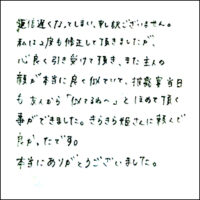 返信遅くなってしまい、申し訳ございません。
私は2度も修正して頂きましたが、
心良く引き受けて頂き、また主人の
顔が本当に良く似ていて、披露宴当日
も友人から「似てるぬ〜」とほめて頂く
事ができました。きらきら姫さんに頼んで
良かったです。
本当にありがとうございました。